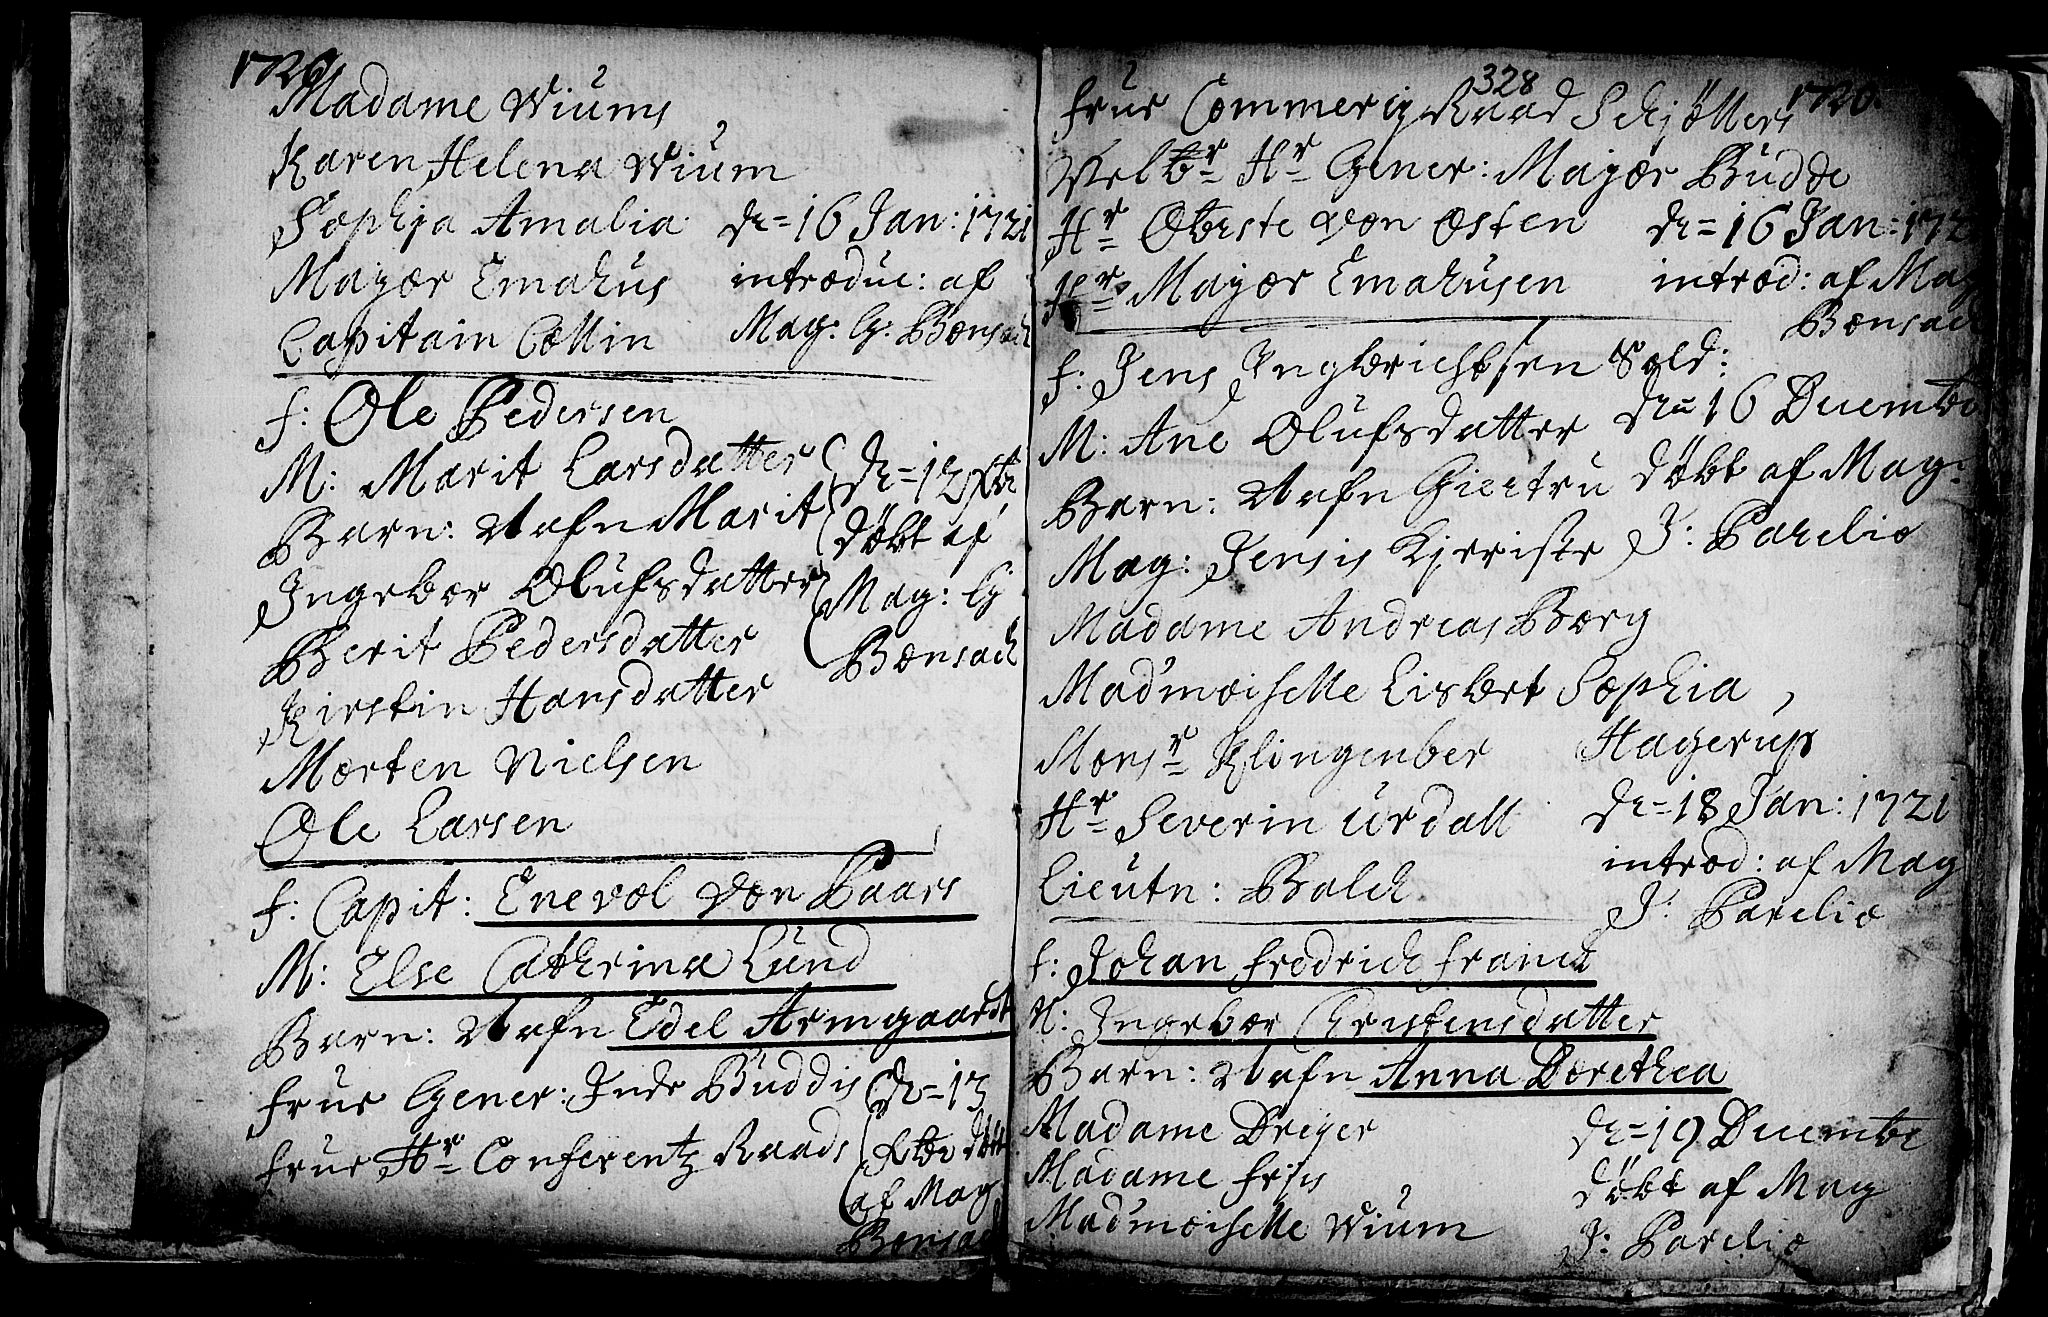 1720
Madame Wiums
Karen Helena Wium
Sophja Amalia
Major Emahus
Capitain Collin
dn= 16 Jan: 1721
introduc: af
Mag: G: Bonsach
f: Ole Pedersen
M: Marit Larsdatter
Barn: Nafn Marit
Ingebor Olufsdatter
Berit Pedersdatter
Kirstin Hansdatter
Morten Nielsen
Ole Larsen
dn= 13 Xbr
døbt af
Mag: G
Bonsach
f: Capit: Enevol von Paars
M: Else Cathrina Lund
Barn: Nafn Edel Armgaardt
frue Gener: Buddis
frue Hr Conferentz Raads
dn= 13
Xbr døbt
af Mag
Bonsach
328
1720.
frue Commerig Raad Schjøllers
Velbr Hr Gener: Major Budde
Hr Obriste von Osten
Hr Major Emahusen
dn= 16 Jan: 172
introd: af Mag
Bonsach
f: Jens Ingbrichtsen Sold:
M: Ane Olufsdatter
Barn: Nafn Giertru
Mag: Jensis Kjeriste
Madame Andreas Borg
Mad'moiselle Lisbet Sophia
Hagerup
Monsr Klingenber
Hr Severin Urdall
Lieutn: Balch
dn= 16 Decembr
døbt af Mag:
J: Parelio
dn= 18 Jan: 1721
introd: af Mag
J: Parelio
f: Johan fredrich franck
M: Ingebor Christensdatter
Barn: Nafn Anna Dorethea
Madame Dreyer
Madame friis
Mad'moiselle Wium
dn= 19 Decembr
døbt af Mag
J: Parelio